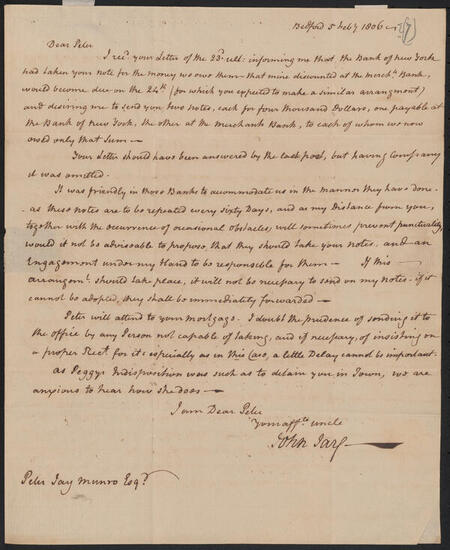 Bedford 5 Feby 1806
Dear Peter
I recd. your Letter of the 23d. ult: informing me that the Bank of New York
had taken your note for the money we owe them – that mine discounted at the Mercht. Bank,
would become due on the 24th. (for which you expected to make a similar arrangmt)
and desiring me to send you two notes, each for four thousand Dollars, one payable at
the Bank of New York, the other at the Merchants Bank, to each of whom we now
owed only that Sum –
Your Letter should have been answered by the last post, but having Company
it was omitted.
It was friendly in those Banks to accommodate us in the Manner they have done –
as these notes are to be repeated every sixty Days, and as my Distance from you,
together with the occurrence of occasional obstacles, will sometimes prevent punctuality,
would it not be adviseable to propose, that they should take your notes, and an
Engagement under my Hand to be responsible for them – If this
arrangemt. should take place, it will not be necessary to send on my notes – if it
cannot be adopted, they shall be immediately forwarded –
Peter will attend to your mortgage. I doubt the prudence of sending it to
the office by any Person not capable of taking, and if necessary, of insisting on
a proper Rect. for it: especially as in this Case, a little Delay cannot be important.
as Peggys Indisposition was such as to detain you in Town, we are
anxious to hear how she does –
I am Dear Peter
your affte. uncle
John Jay
Peter Jay Munro Esqr.